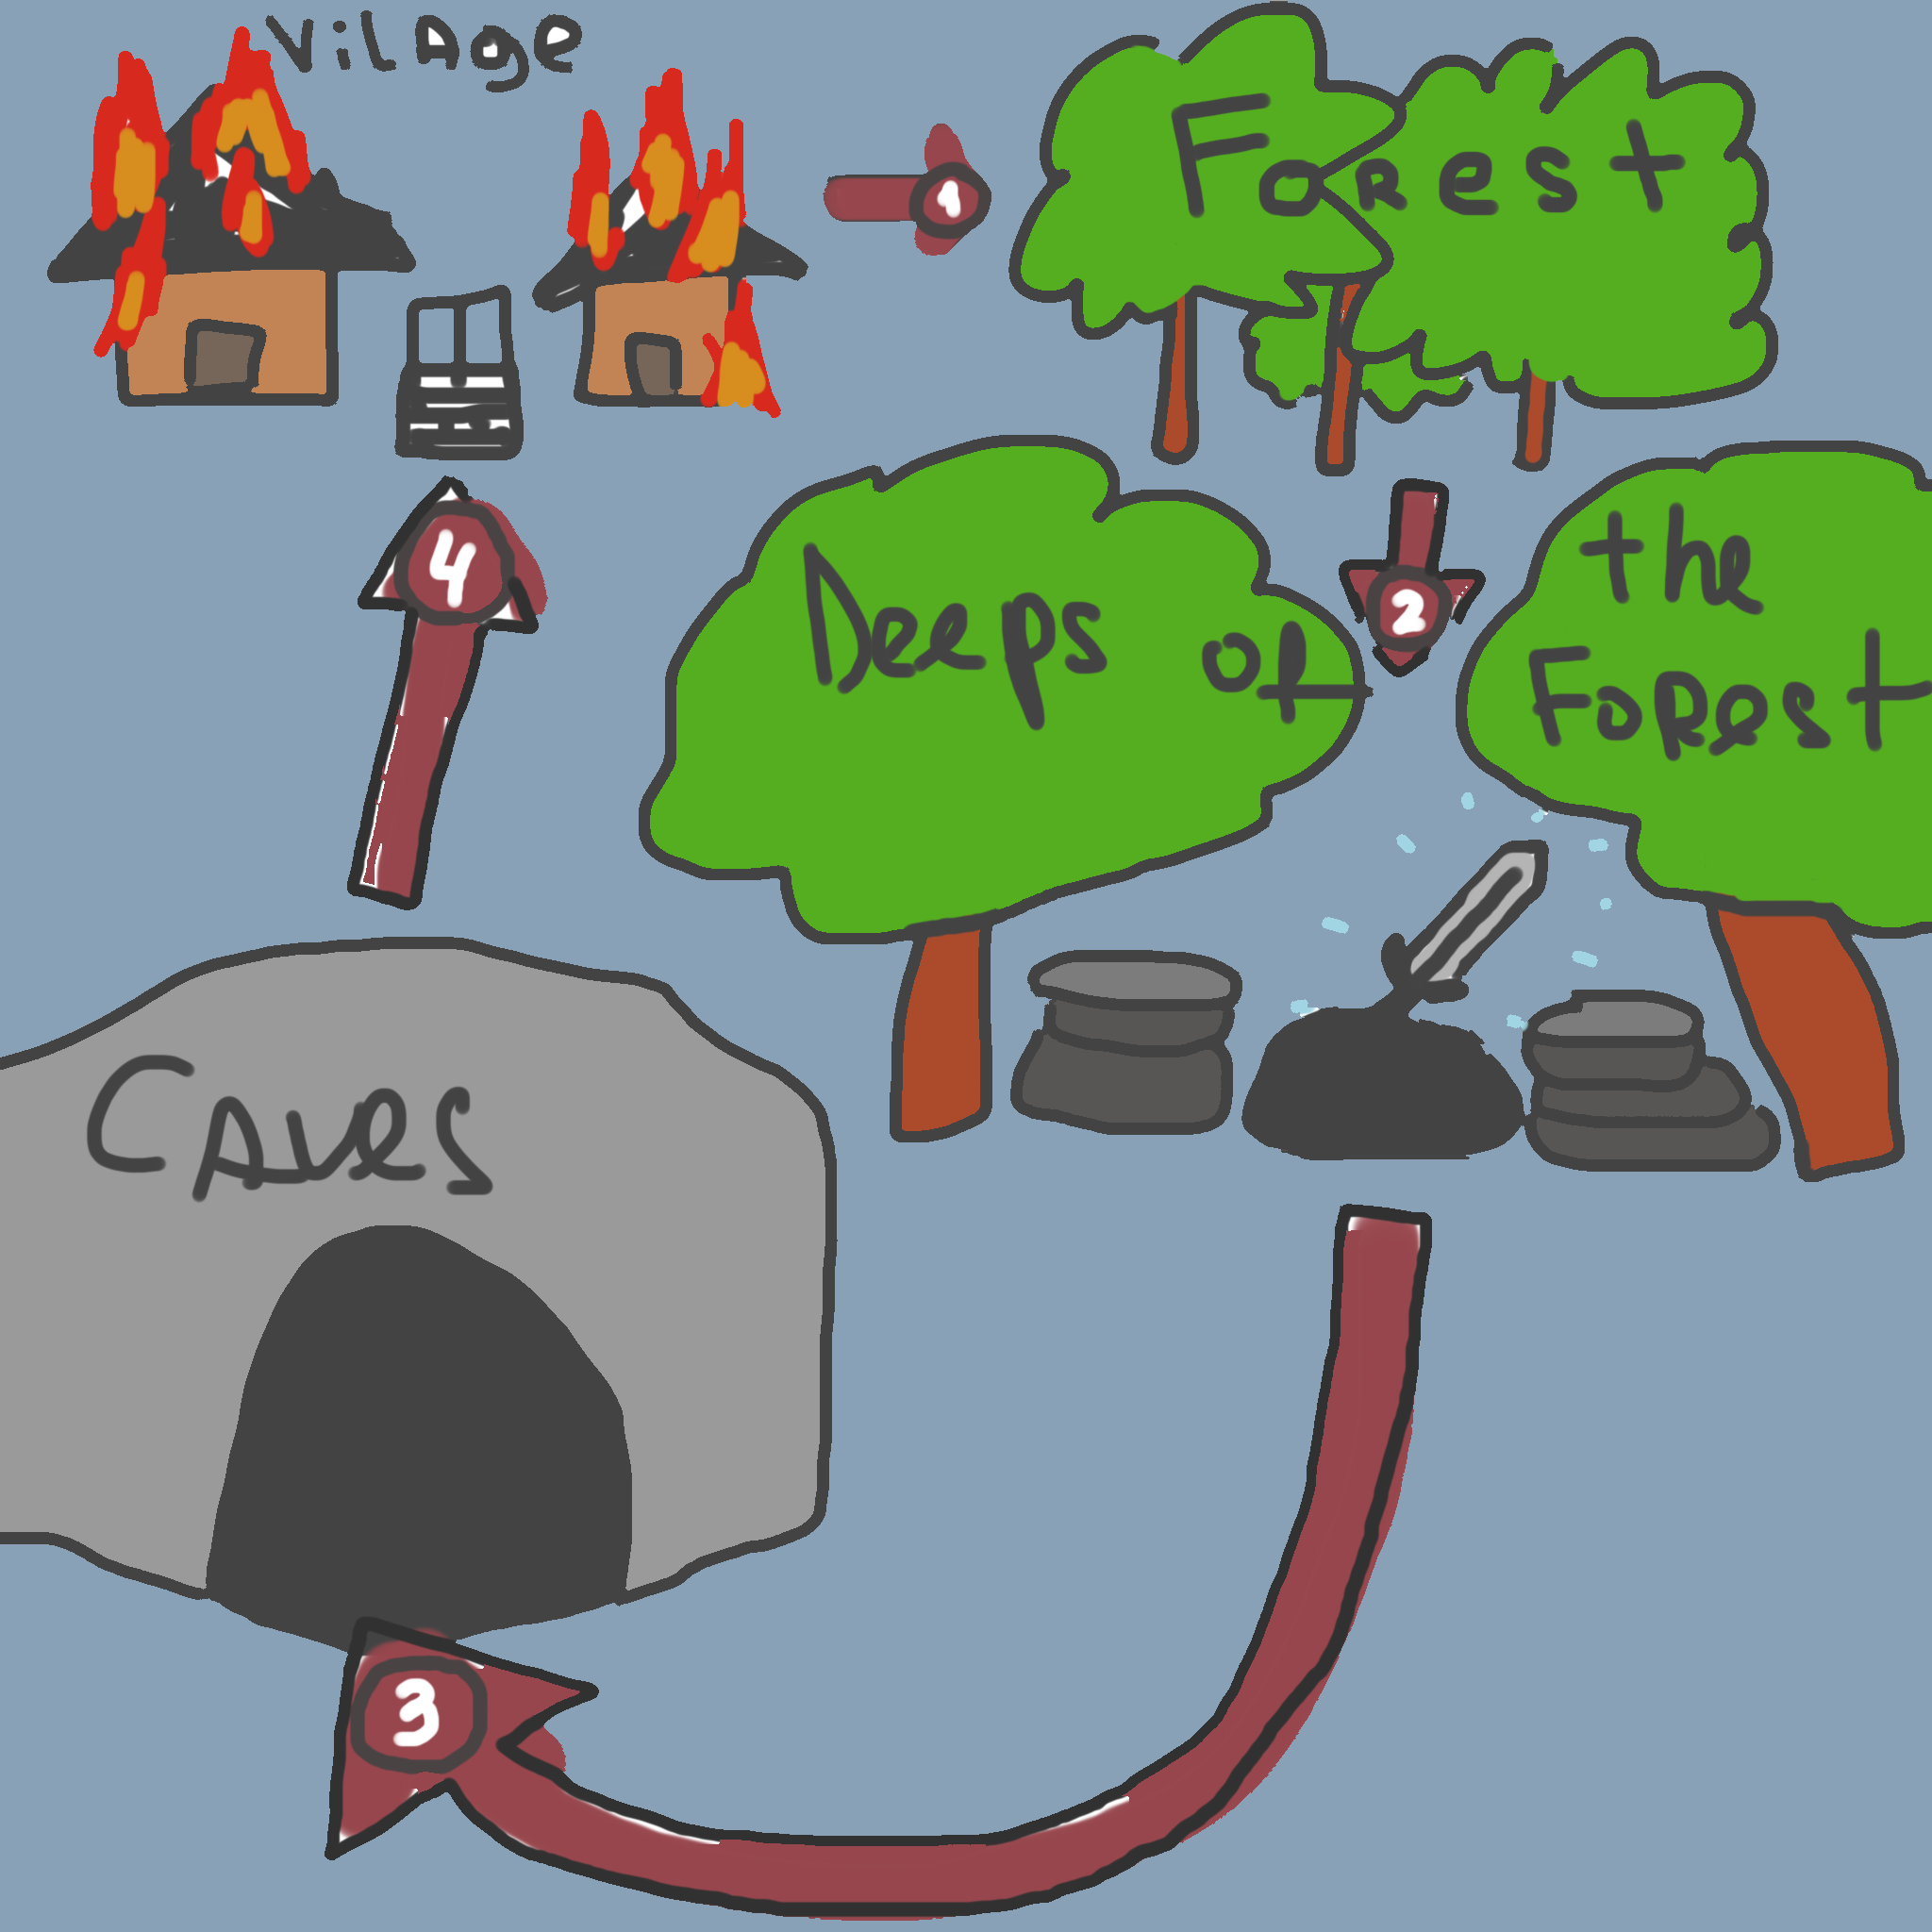 VilAge
FoRest
1
2
4
Deeps of
the
FoRest
CAves
3